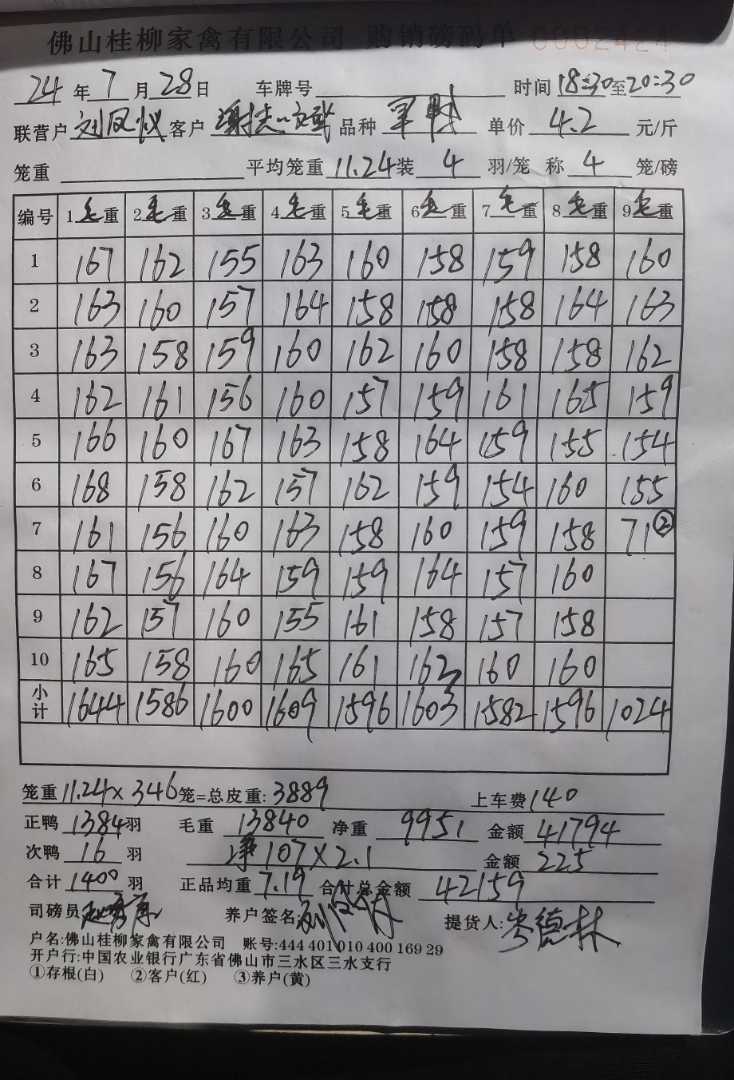 佛山桂柳家禽有限公司 购销磅码单 0002424
24年7月28日 车牌号 时间18:30至20:30
联营户 刘凤仪 客户 品种 单价 4.2 元/斤
笼重 平均笼重 11.24 装 4 羽/笼 称 4 笼/磅
编号 1毛重 2毛重 3毛重 4毛重 5毛重 6毛重 7毛重 8毛重 9毛重
1 167 162 155 163 160 158 159 158 160
2 163 160 157 164 158 158 158 164 163
3 163 158 159 160 162 160 158 158 162
4 162 161 156 160 157 159 161 165 159
5 166 160 167 163 158 164 159 155 154
6 168 158 162 157 162 159 154 160 155
7 161 156 160 163 158 160 159 158 71②
8 167 156 164 159 159 164 157 160
9 162 157 160 155 161 158 157 158
10 165 158 160 165 161 162 160 160
小计 1644 1586 1600 1609 1596 1603 1582 1596 1024
笼重 11.24×346笼=总皮重:3889 上车费 140
正鸭 1384 羽 毛重 13840 净重 9951 金额 41794
次鸭 16 羽 净107×2.1 金额 225
合计 1400 羽 正品均重 7.19 合计总金额 42159
司磅员 养户签名 提货人:岑德林
户名:佛山桂柳家禽有限公司 账号:444 401 010 400 169 29
开户行:中国农业银行广东省佛山市三水区三水支行
①存根(白) ②客户(红) ③养户(黄)